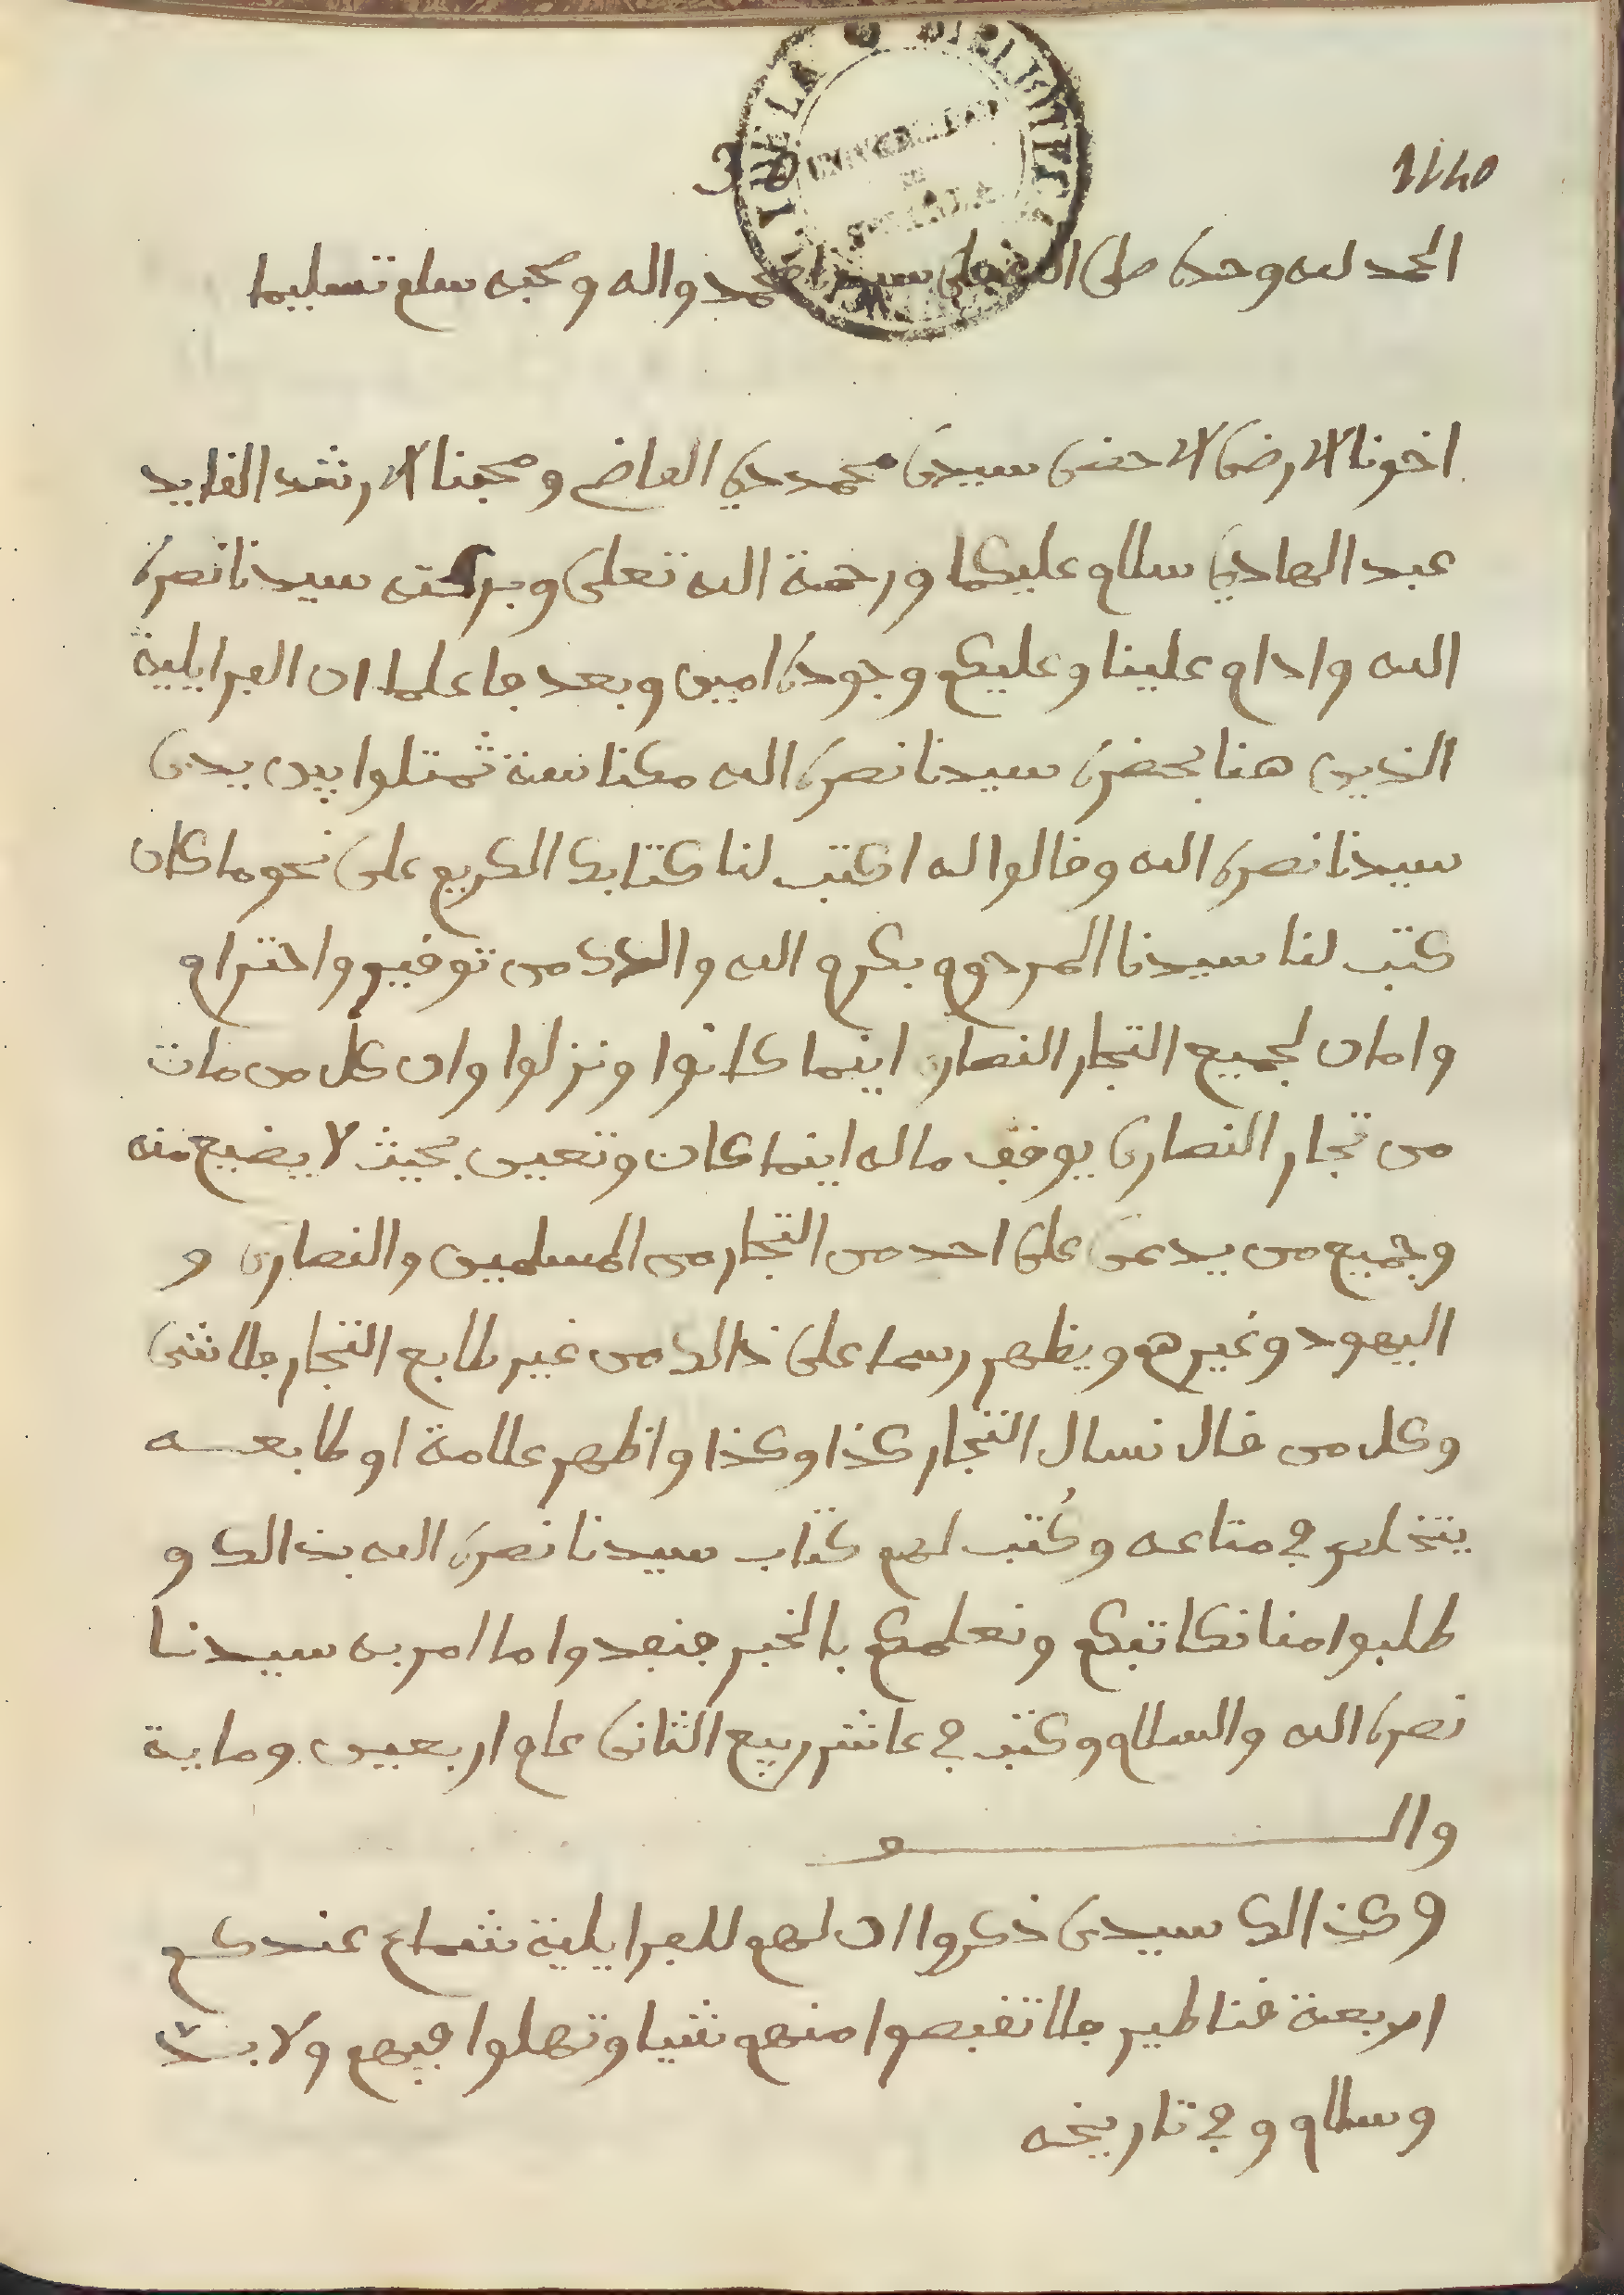 1140
الحمد لله وحده صلى الله على سيدنا محمد واله وصحبه سلم تسليما
اخونا الارضى الاحضى سيدي محمد حي القاضي ومحبنا الارشد القايد
عبد الهادي سلام عليكما ورحمة الله تعلى وبركته سيدنا نصره
الله وادام علينا وعليكم وجوده امين وبعد فاعلما ان الفرايلية
الذين هنا بحضرة سيدنا نصره الله مكناسة تمثلوا بين يدي
سيدنا نصره الله وقالوا له اكتب لنا كتابك الكريم على نحو ما كان
كتب لنا سيدنا المرحوم بكرم الله والدك من توقير واحترام
وامان لجميع التجار النصارى اينما كانوا ونزلوا وان كل من مات
من تجار النصارى يوقف ماله اينما كان وتعين بحيث لا يضيع منه
وجميع من يدعى على احد من التجار من المسلمين والنصارى و
اليهود وغيرهم ويظهر رسما على ذالك من غير طابع التجار فلا شى
وكل من قال نسال التجار كذا وكذا واظهر علامة او طابعه
يتخلص في متاعه وكُتب لهم كتاب سيدنا نصره الله بذالك و
طلبوا منا نكاتبكم ونعلمكم بالخبر فنفدوا ما امر به سيدنا
نصره الله والسلام وكتب في عاشر ربيع الثانى عام اربعين وماية
والف
وكذالك سيدي ذكروا ان لهم للفرايلية شماع عندكم
اربعة قناطير فلا تقبصوا منهم شيا وتهلوا فيهم ولا بد
وسلام وفي تاريخه